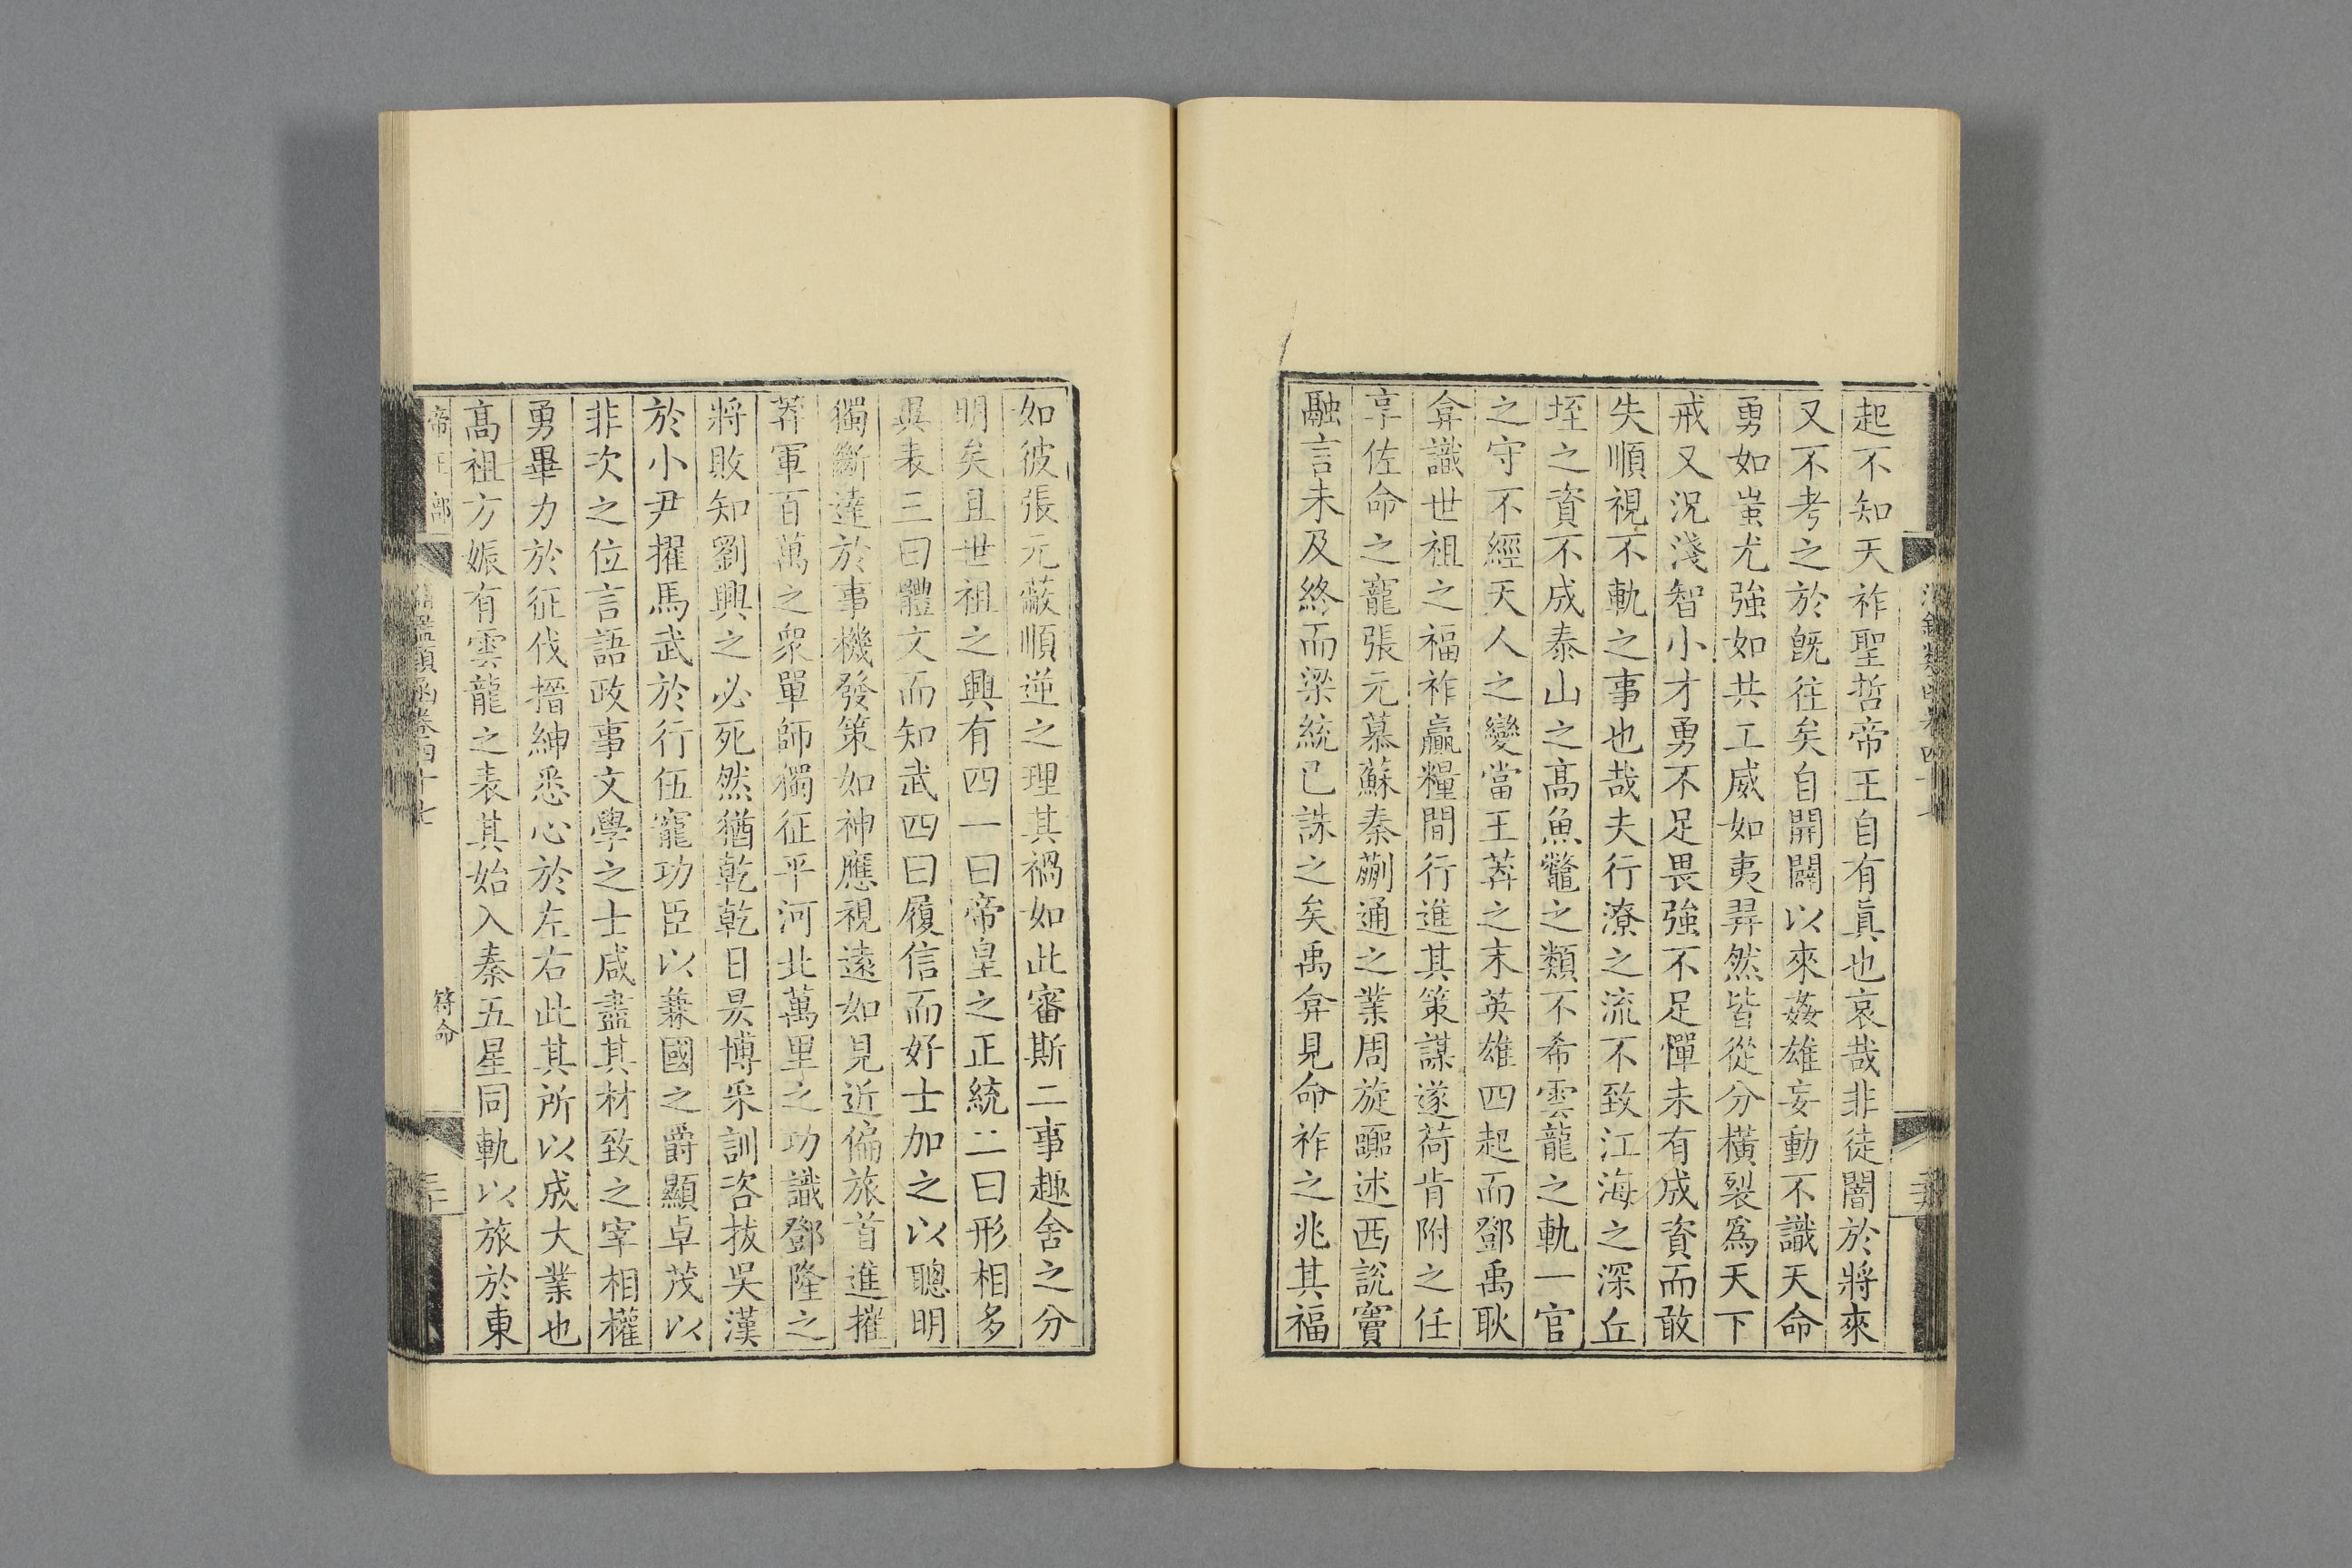 起不知天祚聖哲帝王自有眞也哀哉非徒闇於將來
又不考之於旣往矣自開闢以來姦雄妄動不識天命
勇如蚩尤強如共工威如夷羿然皆從分橫裂爲天下
戒又況淺智小才勇不足畏強不足憚未有成資而敢
失順視不軌之事也哉夫行潦之流不致江海之深丘
垤之資不成泰山之高魚鼈之類不希雲龍之軌一官
之守不經天人之變當王莽之末英雄四起而鄧禹耿
弇識世祖之福祚贏糧間行進其策謀遂荷肯附之任
享佐命之寵張元慕蘇秦蒯通之業周旋嚻述西說竇
融言未及終而梁統已誅之矣禹弇見命祚之兆其福
如彼張元蔽順逆之理其禍如此審斯二事趣舍之分
明矣且世祖之興有四一曰帝皇之正統二曰形相多
異表三曰體文而知武四曰履信而好士加之以聰明
獨斷達於事機發策如神應視遠如見近偏旅首進摧
莽軍百萬之衆單師獨征平河北萬里之功識鄧隆之
將敗知劉興之必死然猶乾乾日昃博采訓咨拔吳漢
於小尹擢馬武於行伍寵功臣以兼國之爵顯卓茂以
非次之位言語政事文學之士咸盡其材致之宰相權
勇畢力於征伐搢紳悉心於左右此其所以成大業也
高祖方娠有雲龍之表其始入秦五星同軌以旅於東
帝王部
鑑類函卷四十七
符命